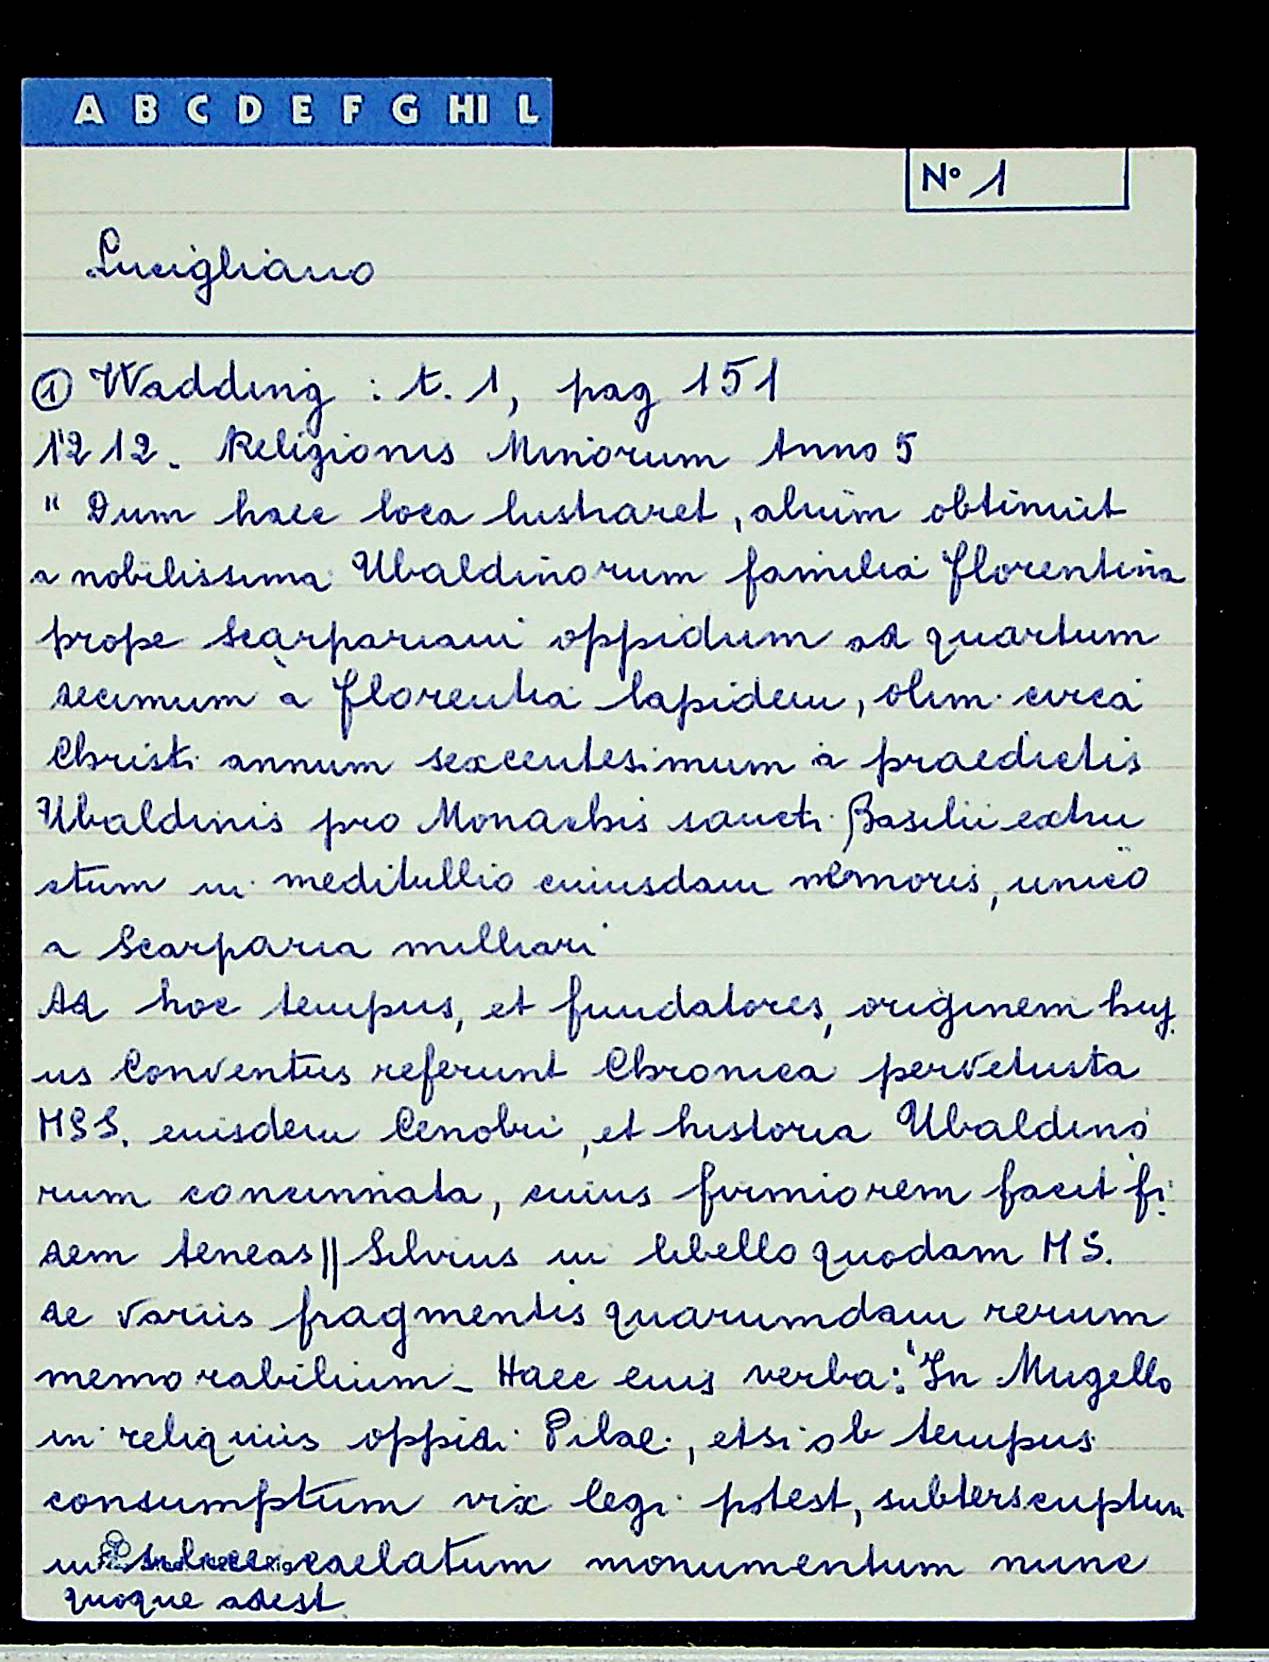 A B C D E F G HI L
N° 1
Lucigliano
① Wadding : t. 1, pag 151
1212. Religionis Minorum Anno 5
" Dum haec loca lustraret, alium obtinuit
a nobilissima Ubaldinorum familia florentina
prope Scarpariam oppidum ad quartum
decimum à florentia lapidem, olim circa
Christi annum sexcentesimum à praedictis
Ubaldinis pro Monachis sancti Basilii extru
ctum in meditullio cuiusdam nemoris, unico
a Scarparia milliari
Ad hoc tempus, et fundatores, originem huj
us Conventus referunt Chronica pervetusta
MSS. eiusdem Cenobii, et historia Ubaldino
rum concinnata, cuius firmiorem facit fi
dem Aeneas || Silvius in libello quodam MS.
de variis fragmentis quarumdam rerum
memorabilium_ Haec eius verba: "In Mugello
in reliquiis oppidi Pilae, etsi ob tempus
consumptum vix legi potest, subterscuptum
in silice caelatum monumentum nunc
quoque adest